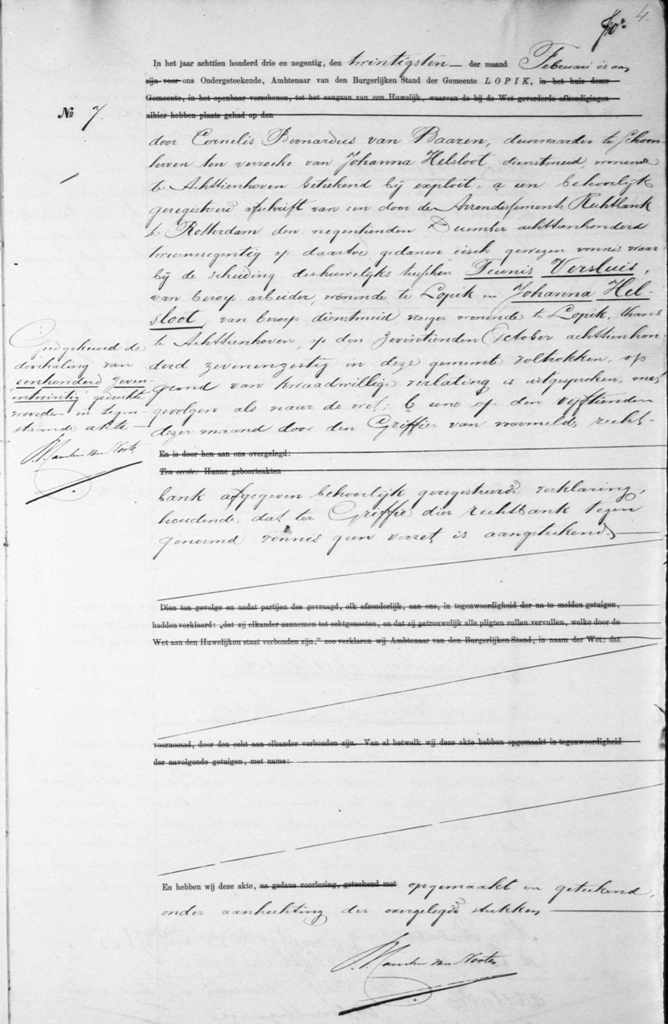 4.
In het jaar achttien honderd drie en negentig, den twintigsten der maand Februari is aan
zijn voor ons Ondergeteekende, Ambtenaar van den Burgerlijken Stand der Gemeente LOPIK, in het huis dezer
Gemeente, in het openbaar verschenen, tot het aangaan van een Huwelijk, waarvan de bij de Wet gevorderde afkondigingen
alhier hebben plaats gehad op den
No 7.
door Cornelis Bernardus van Baaren, deurwaarder te Schoon
hoven ten verzoeke van Johanna Helsloot dienstmeid, wonende
te Achttienhoven beteekend bij exploit, a een behoorlijk
geregistreerd afschrift van een door de Arrondissements Rechtbank
te Rotterdam den negentienden December achttienhonderd
tweeennegentig op daartoe gedanen eisch gewezen vonnis waar
bij de scheiding des huwelijks tusschen Teunis Versluis,
van beroep arbeider, wonende te Lopik en Johanna Hel-
sloot, van beroep dienstmeid vroeger wonende te Lopik, thans
te Achttienhoven, op den October achttienhon
derd zevenenzestig in deze gemeente voltrokken, op
grond van kwaadwillige verlating is uitgesproken, met
gevolgen als naar de wet; b eene op den vijftienden
dezer maand door den Griffier van voormelde recht-
Goedgekeurd de
doorhaling van
eenhonderd zeven
entwintig gedrukte
woorden in tegen
staande akte
En is door hen aan ons overgelegd:
Ten eerste: Hunne geboorteakten
bank afgegeven behoorlijk geregistreerde verklaring,
houdende, dat ter Griffie dier rechtbank tegen
genoemd vonnis geen verzet is aangeteekend.
Dien ten gevolge en nadat partijen des gevraagd, elk afzonderlijk, aan ons, in tegenwoordigheid der na te melden getuigen,
hadden verklaard: „dat zij elkander aannemen tot echtgenooten, en dat zij getrouwelijk alle pligten zullen vervullen, welke door de
Wet aan den Huwelijken staat verbonden zijn," zoo verklaren wij Ambtenaar van den Burgerlijken Stand, in naam der Wet: dat
voornoemd, door den echt aan elkander verbonden zijn. Van al hetwelk wij deze akte hebben opgemaakt in tegenwoordigheid
der navolgende getuigen, met name:
En hebben wij deze akte, na gedane voorlezing, geteekend met opgemaakt en geteekend,
onder aanhechting der overgelegde stukken